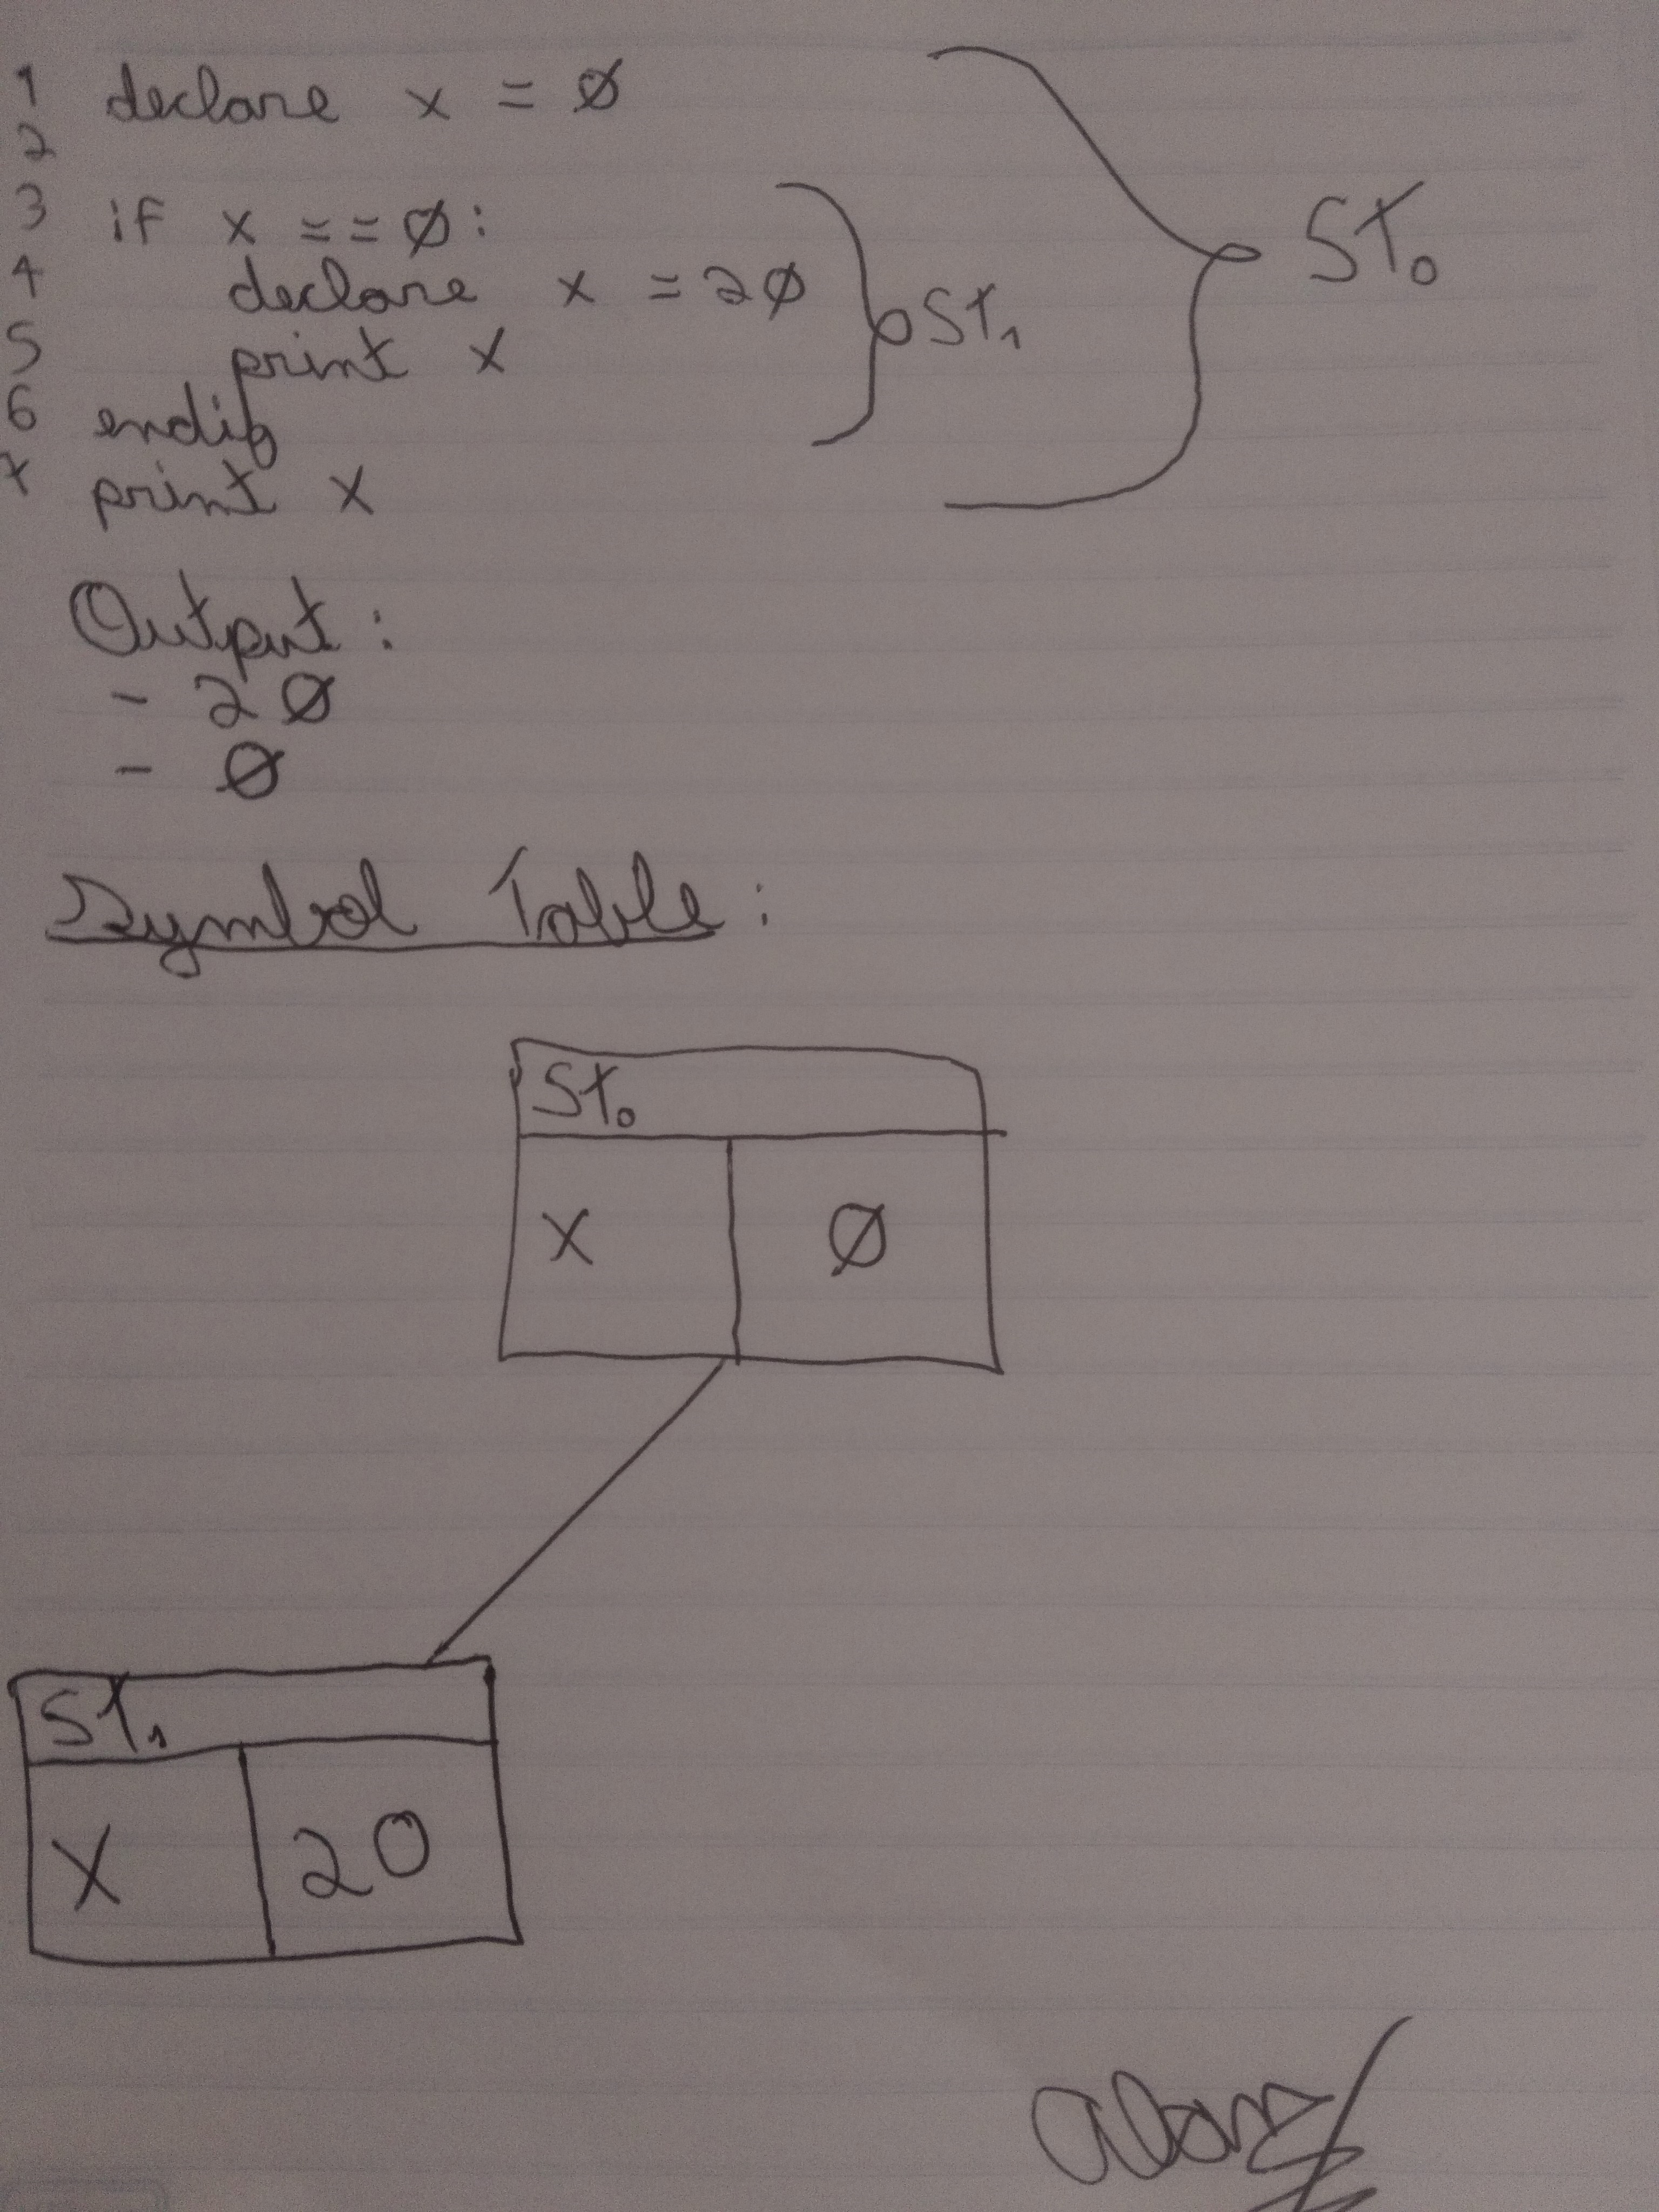 1 declare x = Ø
2
3 if x == Ø: ST0
4 declare x = 2Ø ST1
5 print x
6 endif
7 print x
Output:
- 2Ø
- Ø
Symbol Table:
ST0
x Ø
ST1
x 20